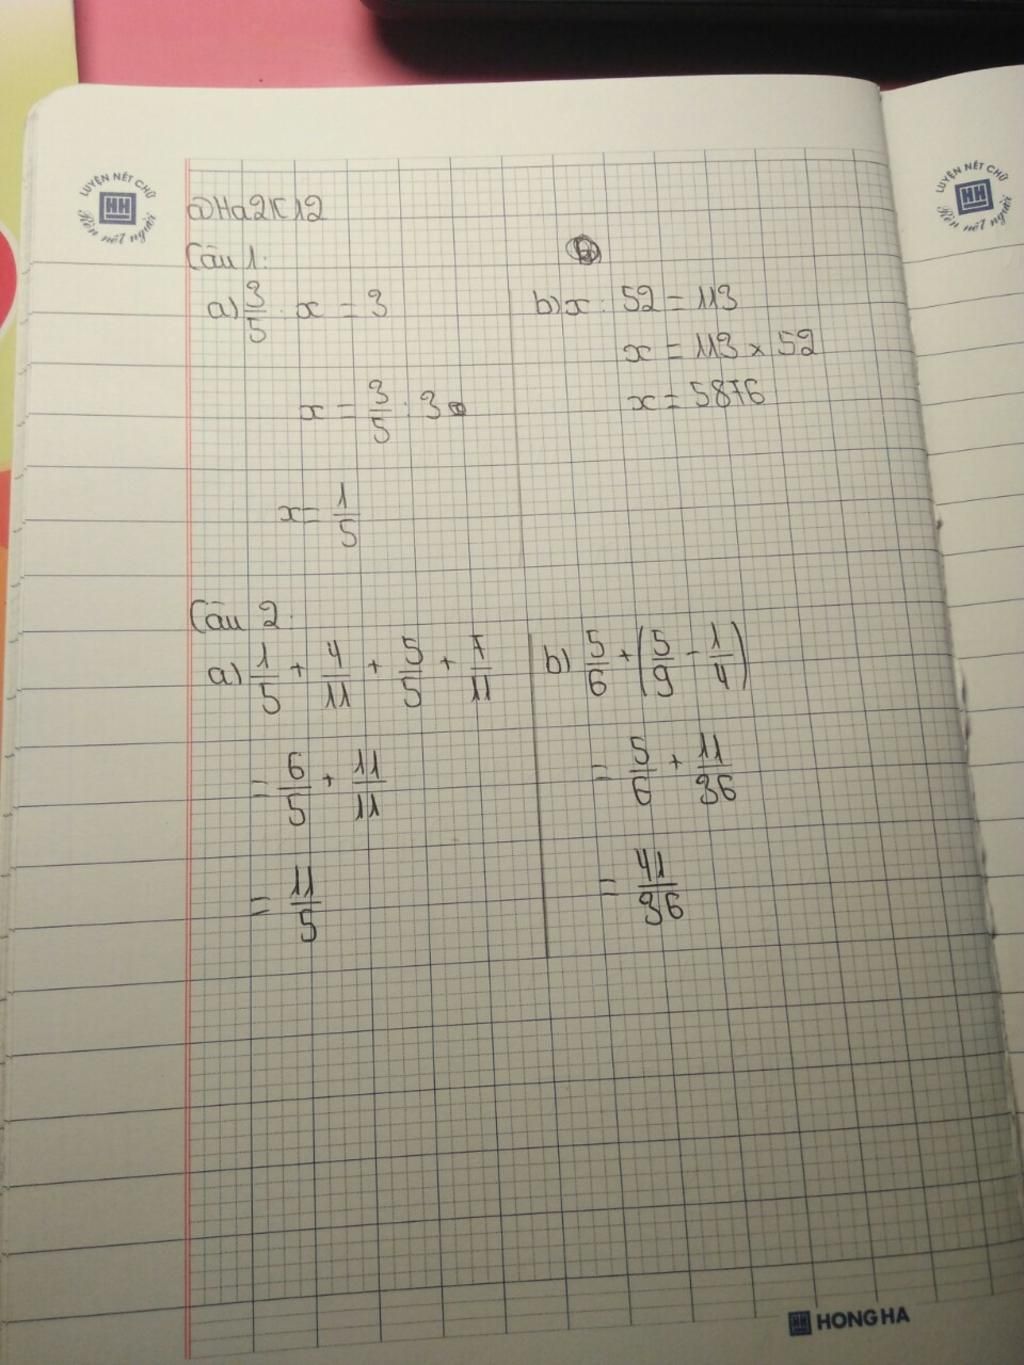 LUYỆN NÉT CHỮ
HH
Rèn nết người
LUYỆN NÉT CHỮ
HH
Rèn nết người
@Ha2K12
Câu 1:
a) 3/5 : x = 3
x = 3/5 : 3
x = 1/5
b) x : 52 = 113
x = 113 x 52
x = 5876
Câu 2:
a) 1/5 + 4/11 + 5/5 + 7/11
= 6/5 + 11/11
= 11/5
b) 5/6 + (5/9 - 1/4)
= 5/6 + 11/36
= 41/36
HH HONG HA